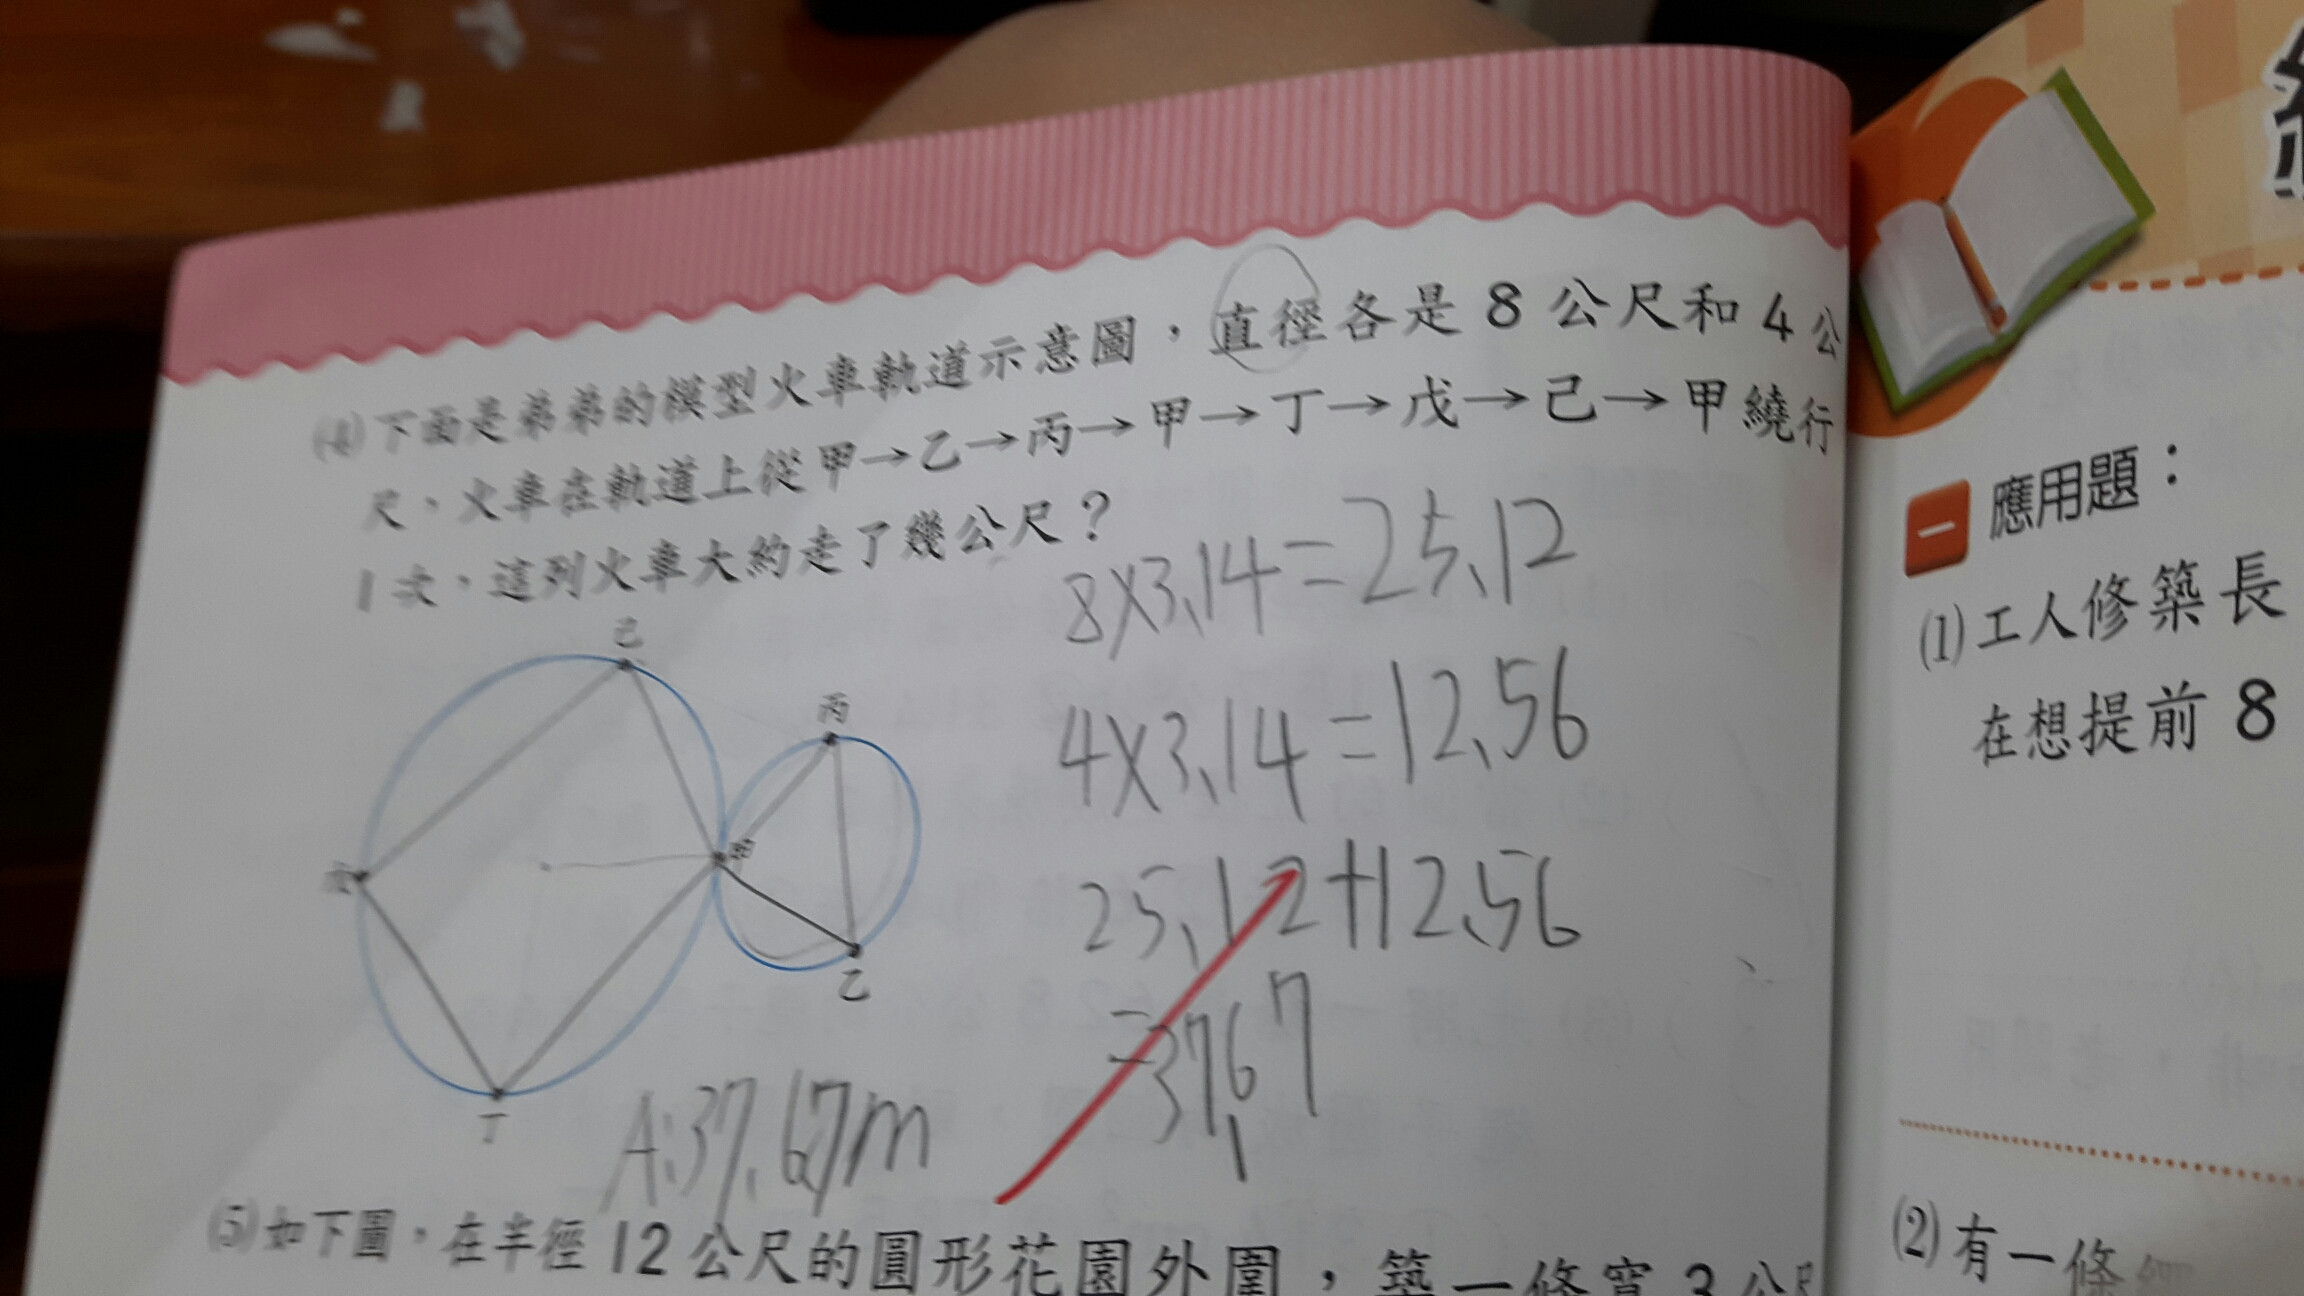 (4)下面是弟弟的模型火車軌道示意圖，直徑各是8公尺和4公
尺，火車在軌道上從甲→乙→丙→甲→丁→戊→己→甲繞行
1次，這列火車大約走了幾公尺？
8×3.14=25.12
4×3.14=12.56
25.12+12.56
=37.67
己
丙
甲
戊
乙
丁
A:37.67m
(5)如下圖，在半徑12公尺的圓形花園外圍，築一條寬3公尺
一 應用題：
(1)工人修築長
在想提前8
(2)有一條